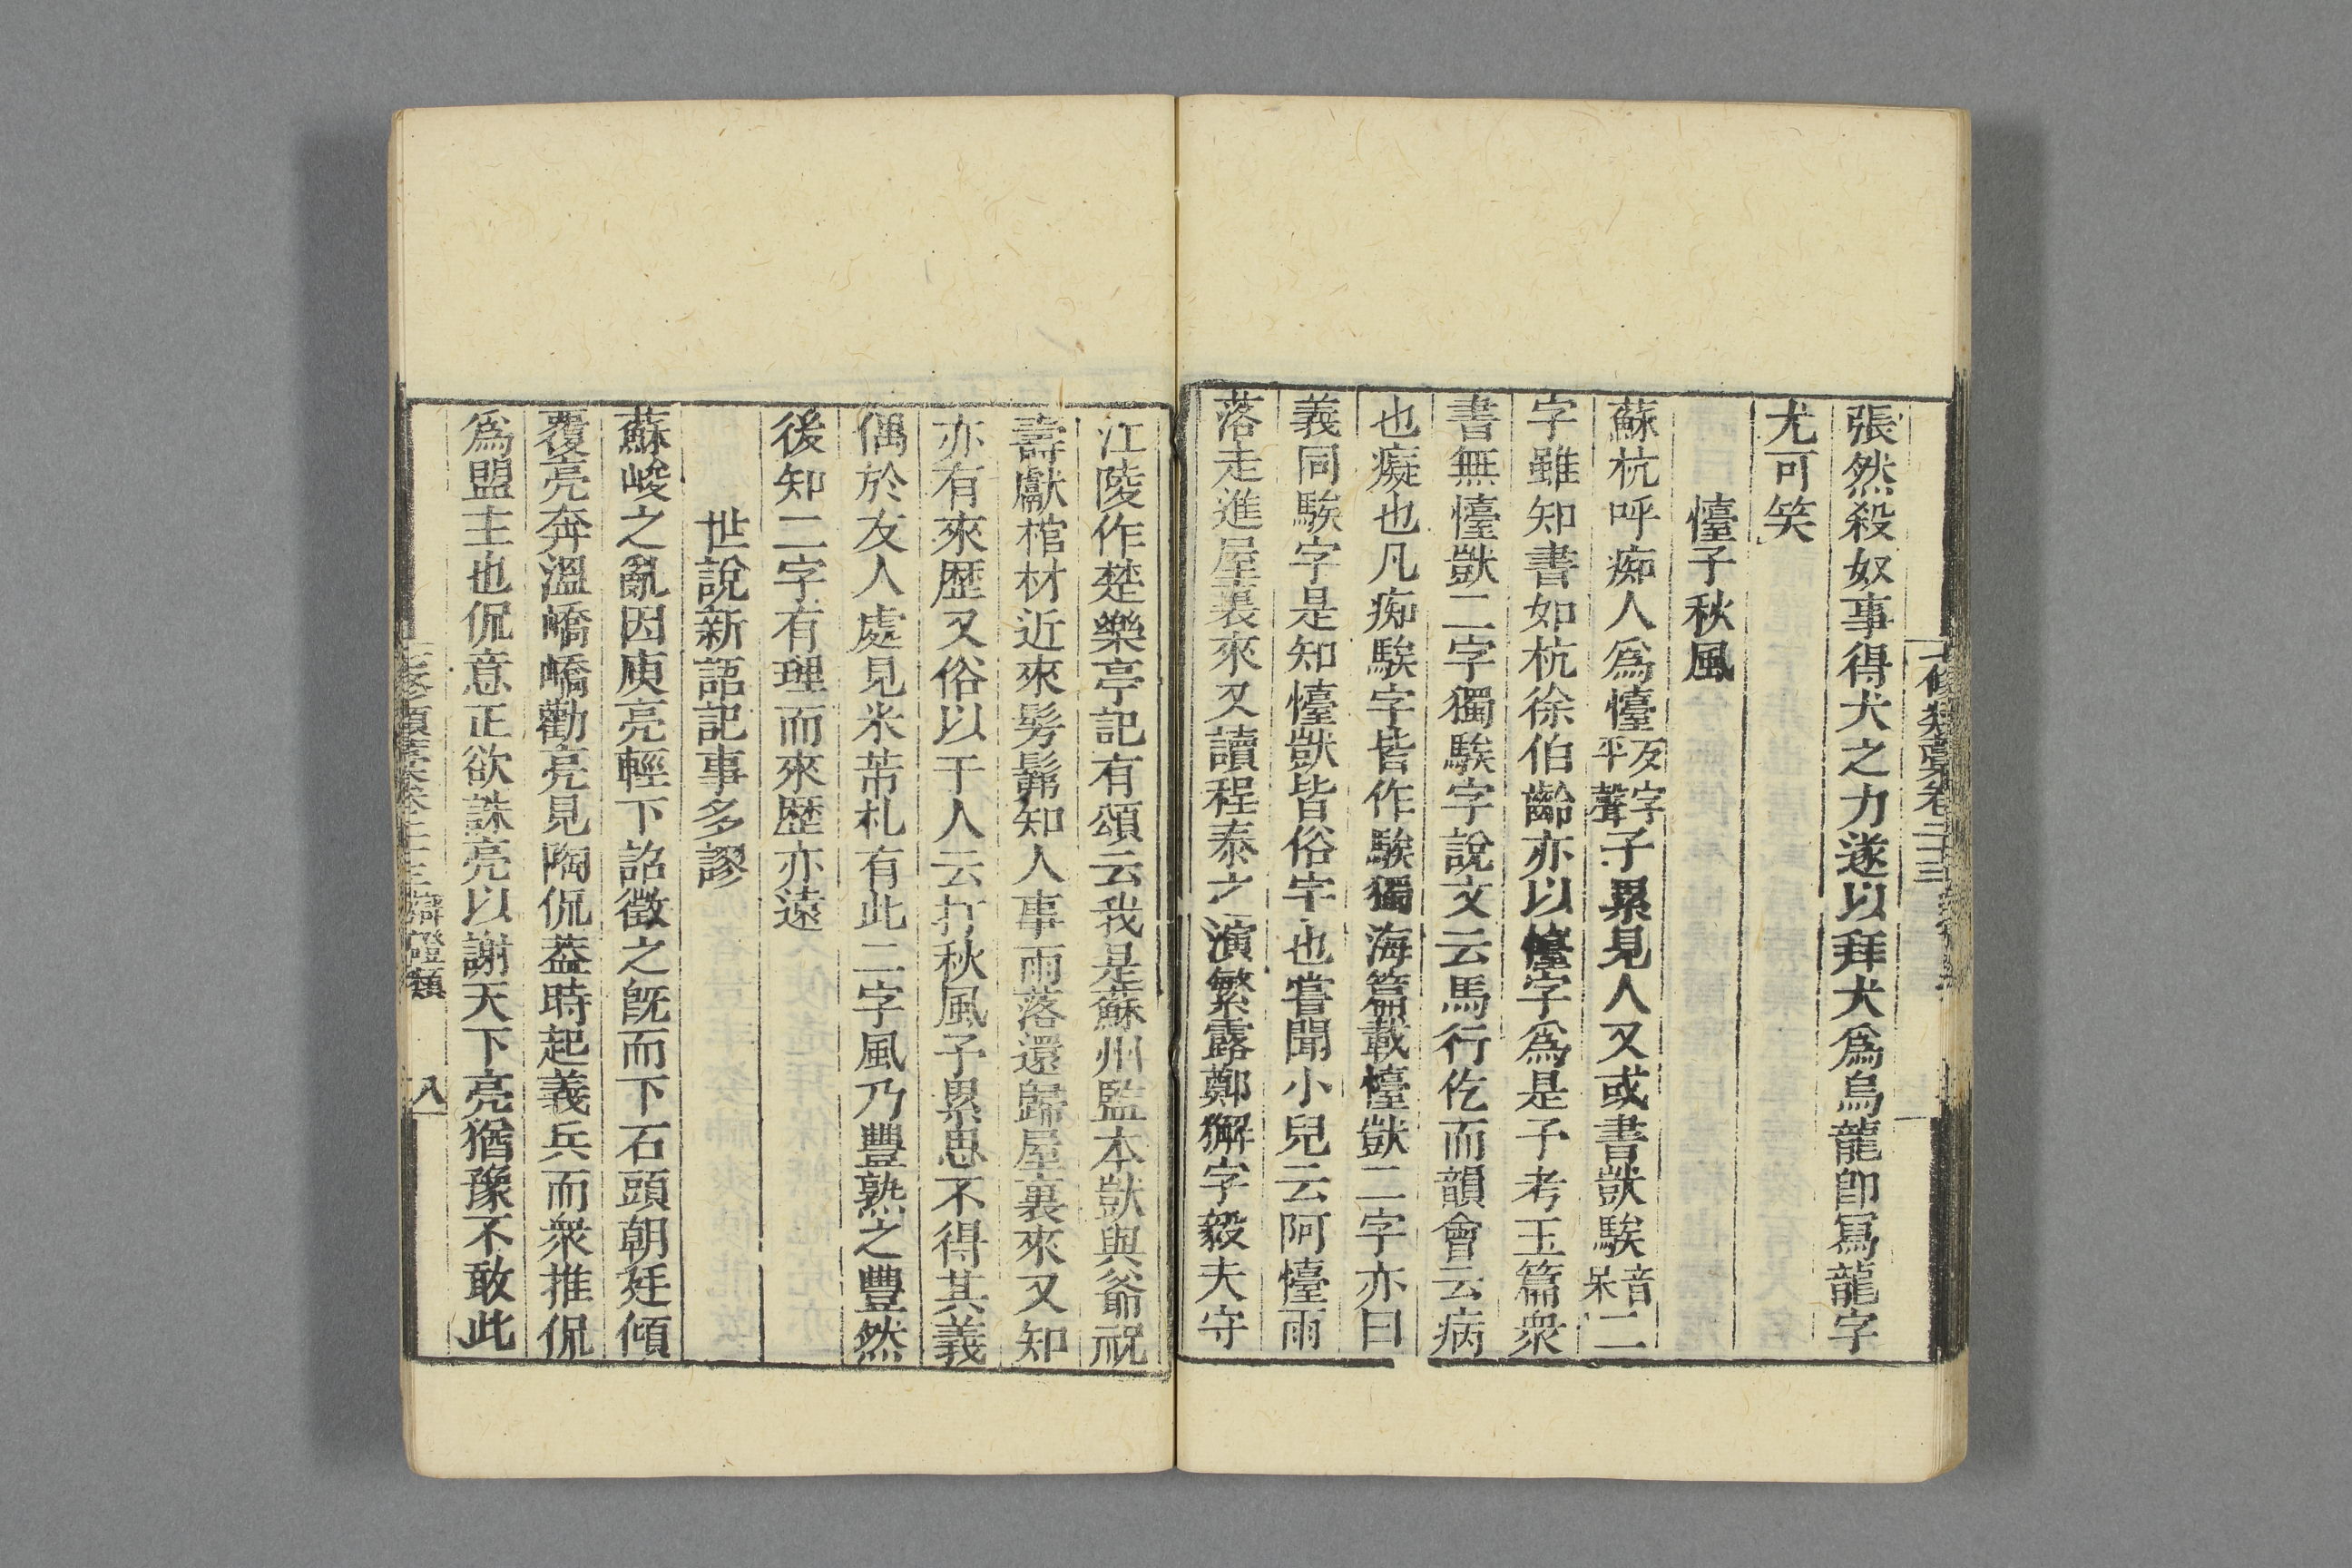 張然殺奴事得犬之力遂以拜犬爲烏龍卽寫龍字
尤可笑
懛子秋風
蘇杭呼痴人爲懛歹字平聲子累見人又或書獃騃音呆二
字雖知書如杭徐伯齡亦以懛字爲是予考玉篇衆
書無懛獃二字獨騃字說文云馬行仡而韻會云病
也癡也凡痴騃字皆作騃獨海篇載懛獃二字亦曰
義同騃字是知懛獃皆俗字也嘗聞小兒云阿懛雨
落走進屋裏來又讀程泰之演繁露鄭獬字毅夫守
江陵作楚樂亭記有頌云我是蘇州監本獃與爺祝
壽獻棺材近來髣髴知人事雨落還歸屋裏來又知
亦有來歴又俗以干人云打秋風予累思不得其義
偶於友人處見米芾札有此二字風乃豐熟之豐然
後知二字有理而來歴亦遠
世說新語記事多謬
蘇峻之亂因庾亮輕下詔徵之旣而下石頭朝廷傾
覆亮奔溫嶠嶠勸亮見陶侃葢時起義兵而衆推侃
爲盟主也侃意正欲誅亮以謝天下亮猶豫不敢此
辯證類 八